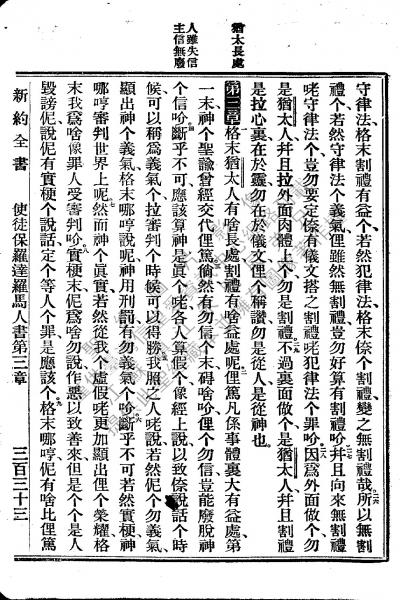 猶太長處
人雖失信
主信無廢
守律法格末割禮有益个、若然犯律法、格末倷个割禮變之無割禮哉、所以無割
禮个若然守律法个義氣、俚雖然無割禮、豈勿好算有割禮吤、并且向來無割禮
咾守律法个、豈勿要定倷有儀文搭之割禮咾犯律法个罪吤、因爲外面做个勿
是猶太人、并且拉外面肉體上个勿是割禮、不過裏面做个是猶太人、并且割禮
是拉心裏、在於靈勿在於儀文、俚个稱讚勿是從人是從神也。
第三章 格末猶太人有啥長處、割禮有啥益處呢、俚篤凡係事體裏大有益處、第
一末、神个聖諭曾經交代俚篤、倘然有勿信个末碍啥吤、俚个勿信豈能廢脫神
个信吤、斷乎不可、應該算神是眞个、咾各人算假个、像經上說、以致倷說話个時
候可以稱爲義氣个、拉審判个時候可以得勝、我照之人咾說、若然伲个勿義氣、
顯出神个義氣、格末哪哼說呢、神用刑罰有勿義氣个吤、斷乎不可、若然實梗神
哪哼審判世界上呢、然而神个眞實、若然從我个虛假咾更加顯出俚个榮耀、格
末我爲啥像罪人受審判吤、實梗末伲爲啥勿說作惡以致善來、但是个个是人
毀謗伲、說伲有實梗个說話、定个等人个罪是應該个、格末哪哼、伲有啥比俚篤
新約全書 使徒保羅達羅馬人書第三章 三百三十三